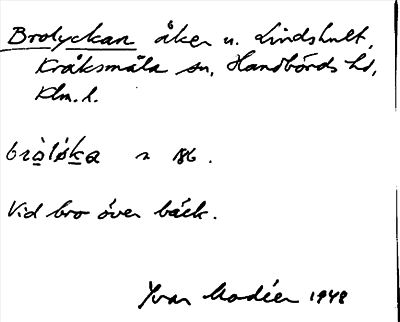 Brolyckan åker u. Lindshult,
Kråksmåla sn, Handbörds hd,
Klm. l.
bròløka n 186.
Vid bro över bäck.
Yvar Modéer 1948